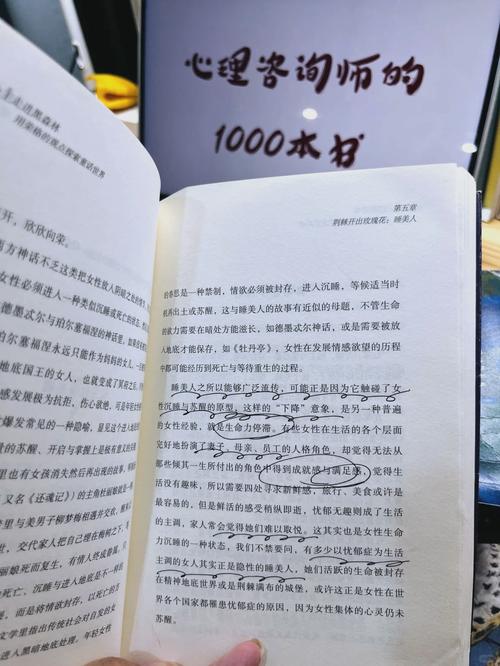 心理咨询师的
1000本书
主走进黑森林
用荣格的观点探索童话世界
开，欣欣向荣。
方神话不乏这类把女性放入阴暗之处的
女性必须进入一种类似沉睡或死亡的状态，
德墨忒尔与珀尔塞福涅的神话里，如果
塞福涅永远只能作为妈妈的女儿，一
地底国王的女人，也就变成了冥府之后。
塞福涅极为抗拒，伤心欲绝，可是年轻女
爆发常见的一种隐喻，是
的苏醒、开启与掌握上是极有意义的
也有女孩消失然后再出现的故事，
又名《还魂记》）的主角杜丽娘因
里与美男子柳梦梅相遇并相恋，
，交代家人把自己埋在梅树之下，
丽娘死而复生，有情人终成眷属，
死亡、沉睡与进入地底是不一样
，而是将情欲封存，以死亡的
文学里指出传统社会对自发的女
入黑暗地底处理。年轻女性
第五章
荆棘开出玫瑰花：睡美人
的春思是一种禁制，情欲必须被封存，进入沉睡，等候适当时
机再出土或苏醒，这与睡美人的故事有近似的母题，不管生命
的欲力需要在暗处方能滋长，如德墨忒尔神话，或是需要被放
入地底才能保存，如《牡丹亭》，女性在发展情感欲望的历程
中都可能经历到死亡与等待重生的过程。
睡美人之所以能够广泛流传，可能正是因为它触碰了女
性沉睡与苏醒的原型。这样的“下降”意象，是另一种普遍
的女性经验，就是生命力停滞。有些女性在生活的各个层面
完好地扮演了妻子、母亲、员工的人格角色，却觉得无法从
那些倾其一生所付出的角色中得到成就感与满足感，觉得生
活没有趣味，所以需要四处寻求新鲜感，旅行、美食或许是
最容易的，但是新鲜的感受稍纵即逝，忧郁无趣则成了生活
的主调，家人常会觉得她们难以取悦。这其实也是女性生命
力沉睡的一种状态，我们不禁要问，有多少以忧郁症为生活
主调的女人其实正是隐性的睡美人，她们活跃的生命被封存
在精神地底世界或是荆棘满布的城堡，或许这正是女性在世
界各个国家都罹患忧郁症的原因，因为女性集体的心灵仍未
苏醒。